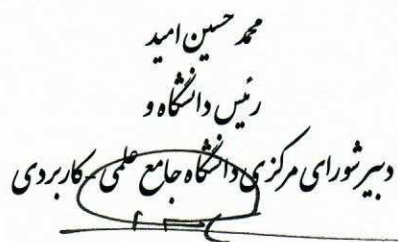 محمد حسین امید
رئیس دانشگاه و
دبیر شورای مرکزی دانشگاه جامع علمی - کاربردی